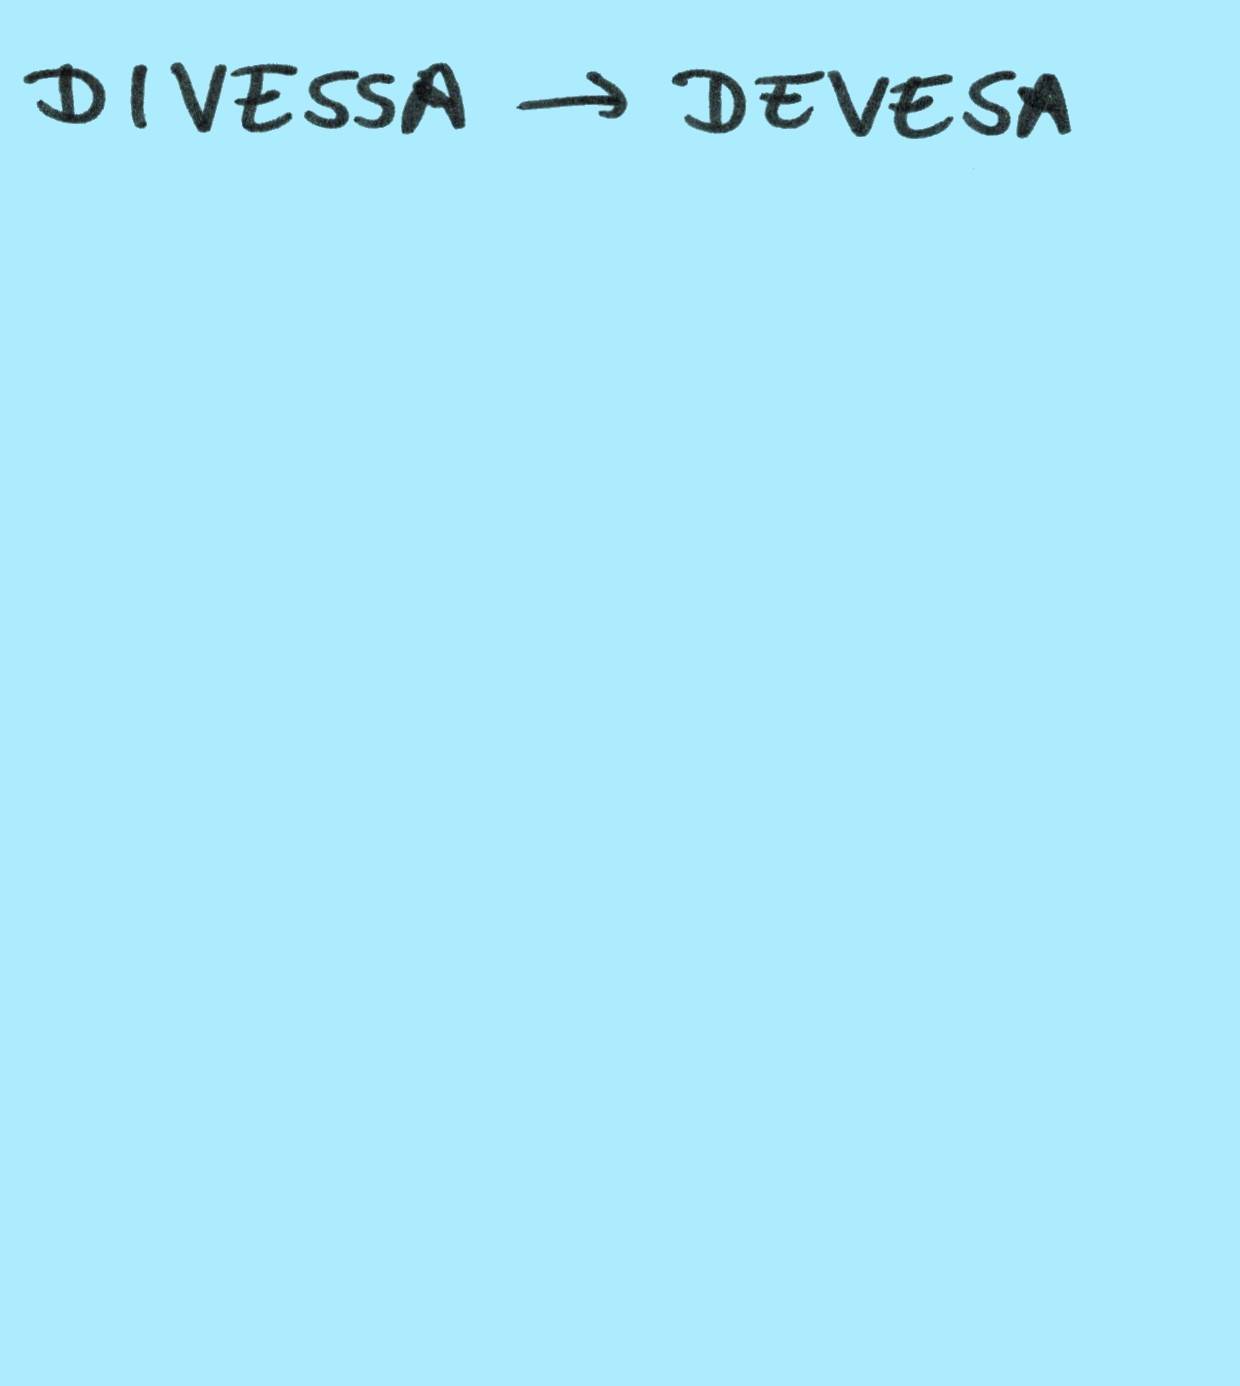 DIVESSA → DEVESA